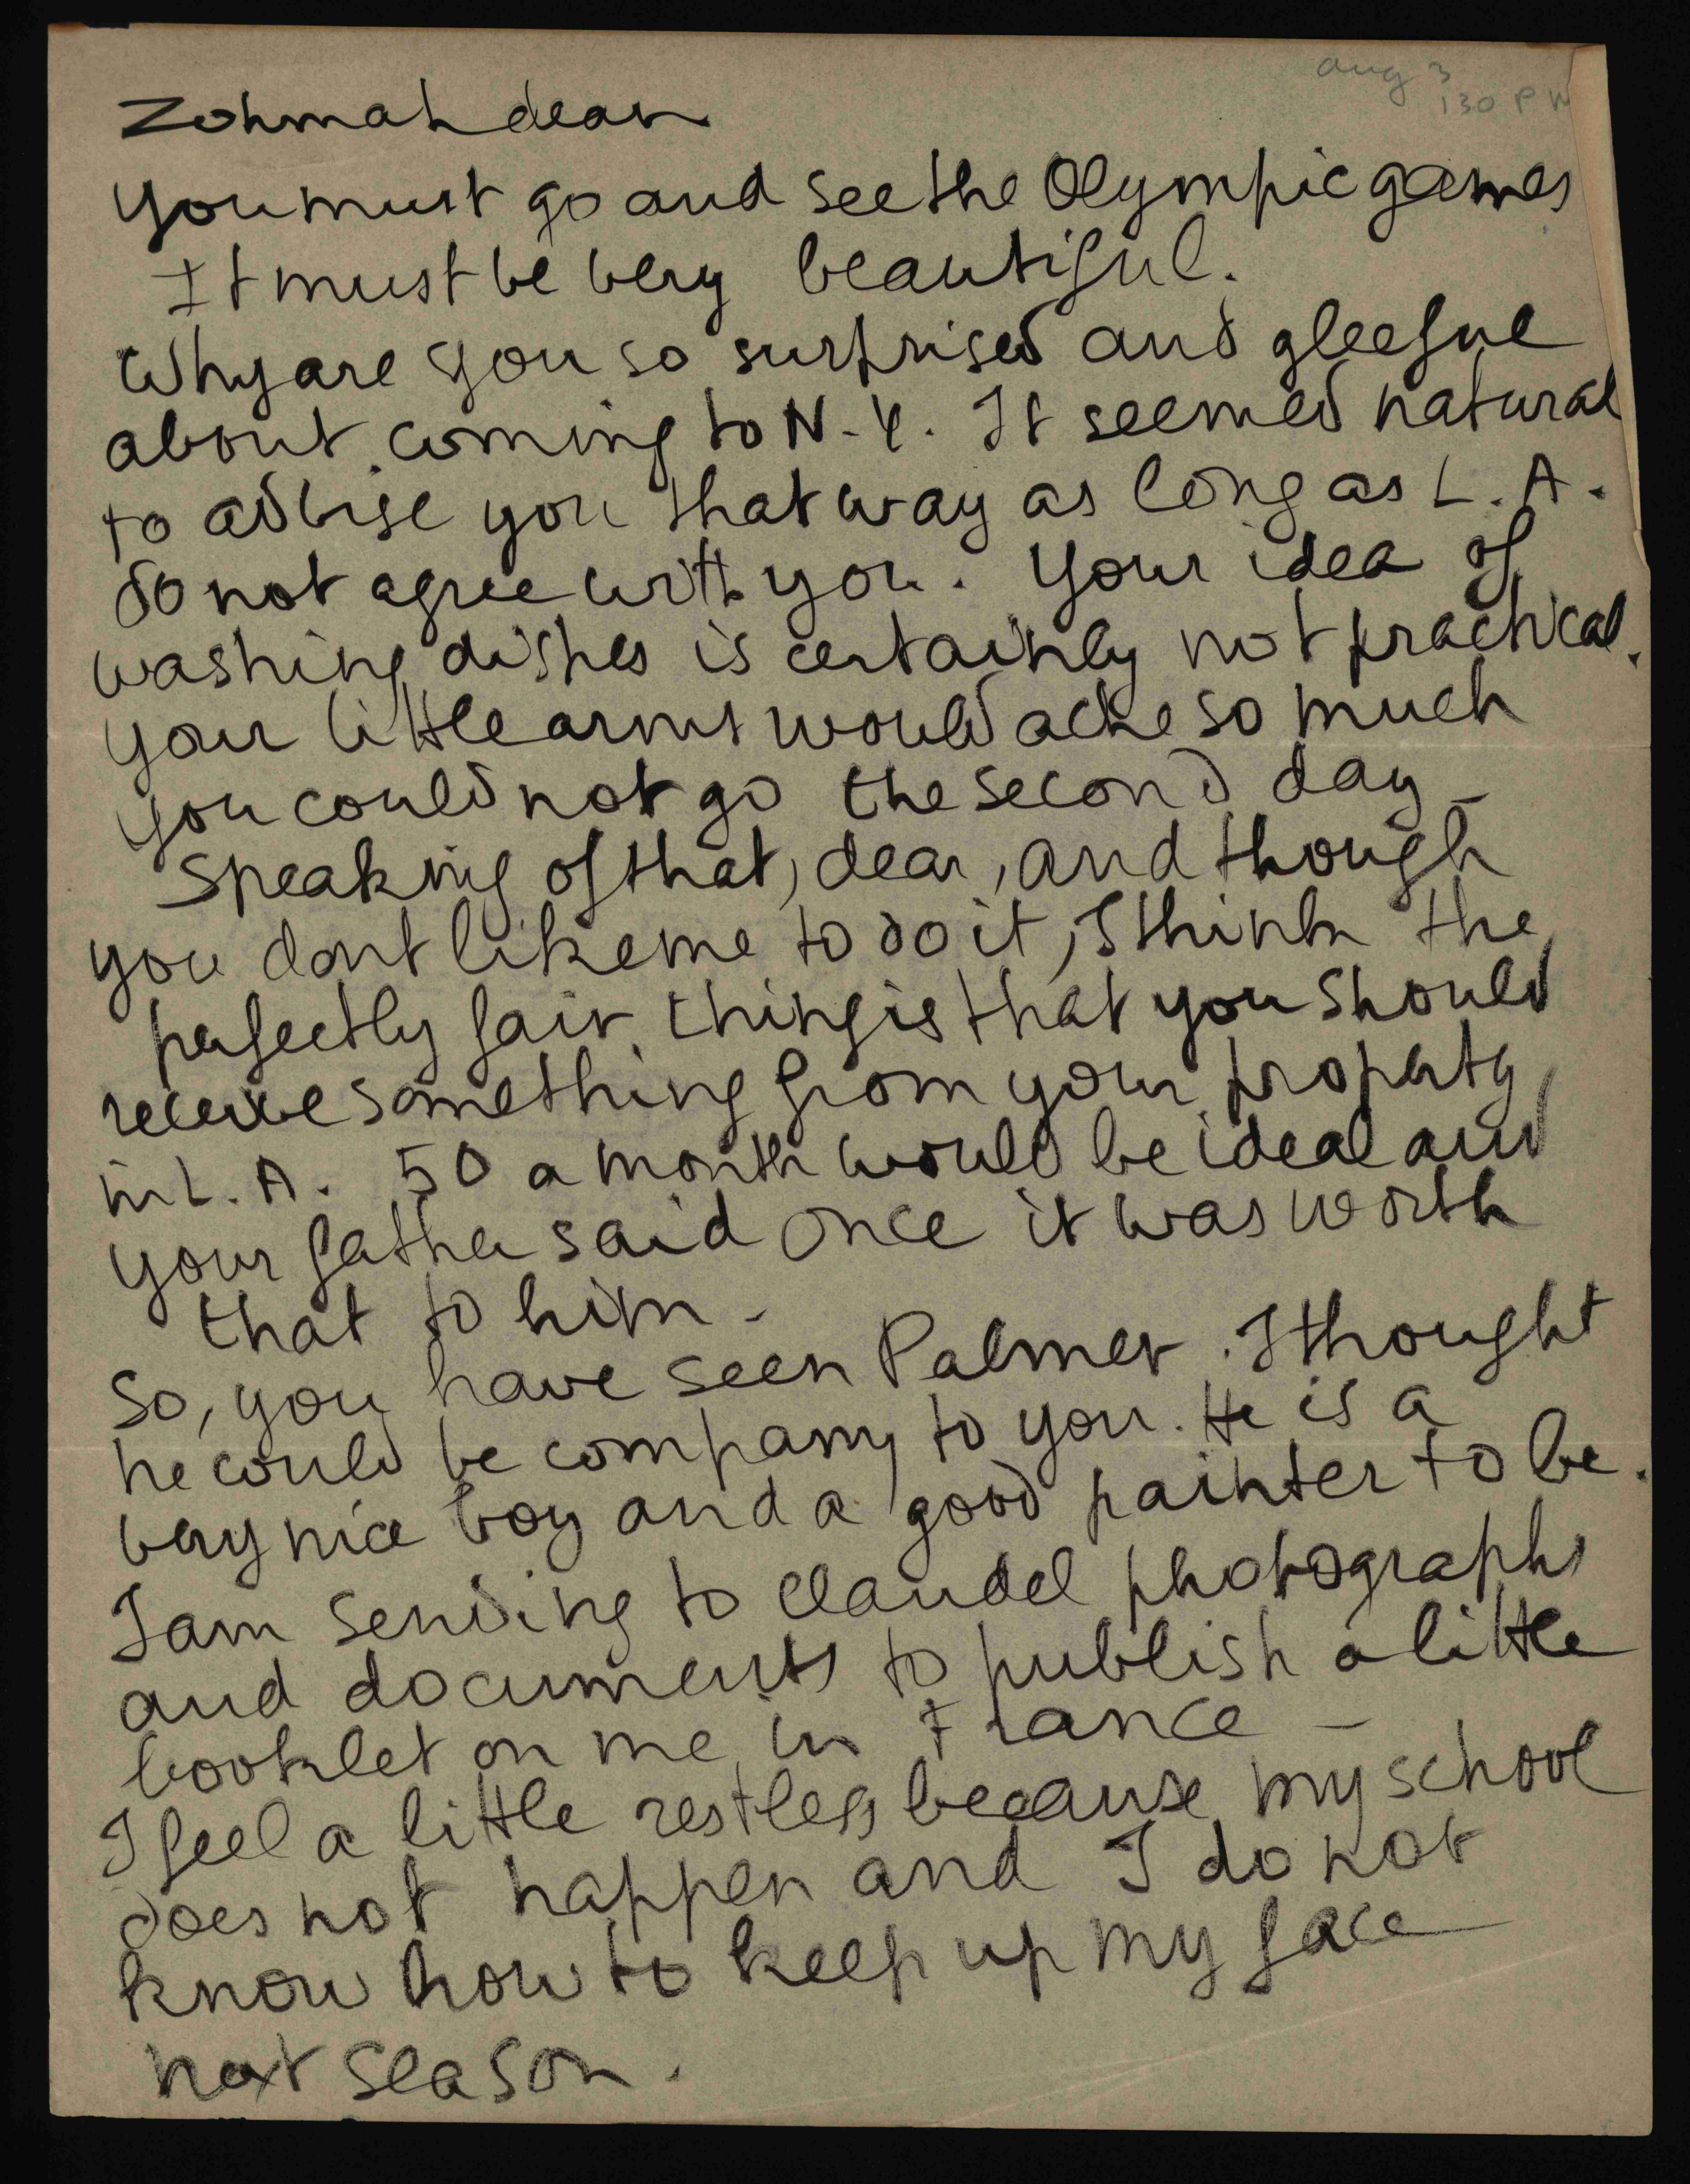 aug 3
130 PM
Zohmah dear
You must go and see the Olympic games
It must be very beautiful.
Why are you so surprised and gleeful
about coming to N-Y. It seemed natural
to advise you that way as long as L.A.
do not agree with you. Your idea of
washing dishes is certainly not practical.
Your little arms would ache so much
you could not go the second day –
Speaking of that, dear, and though
you dont like me to do it, I think the
perfectly fair thing is that you should
receive something from your property
in L.A. 50 a month would be ideal and
your father said once it was worth
that to him –
So, you have seen Palmer. I thought
he could be company to you. He is a
very nice boy and a good painter to be.
I am sending to Claudel photographs
and documents to publish a little
booklet on me in France –
I feel a little restless because my school
does not happen and I do not
know how to keep up my face
next season.